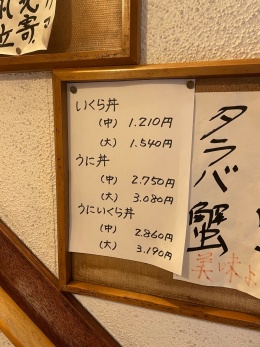 いくら丼
(中) 1.210円
(大) 1.540円
うに丼
(中) 2.750円
(大) 3.080円
うにいくら丼
(中) 2.860円
(大) 3.190円
タラバ蟹
美味